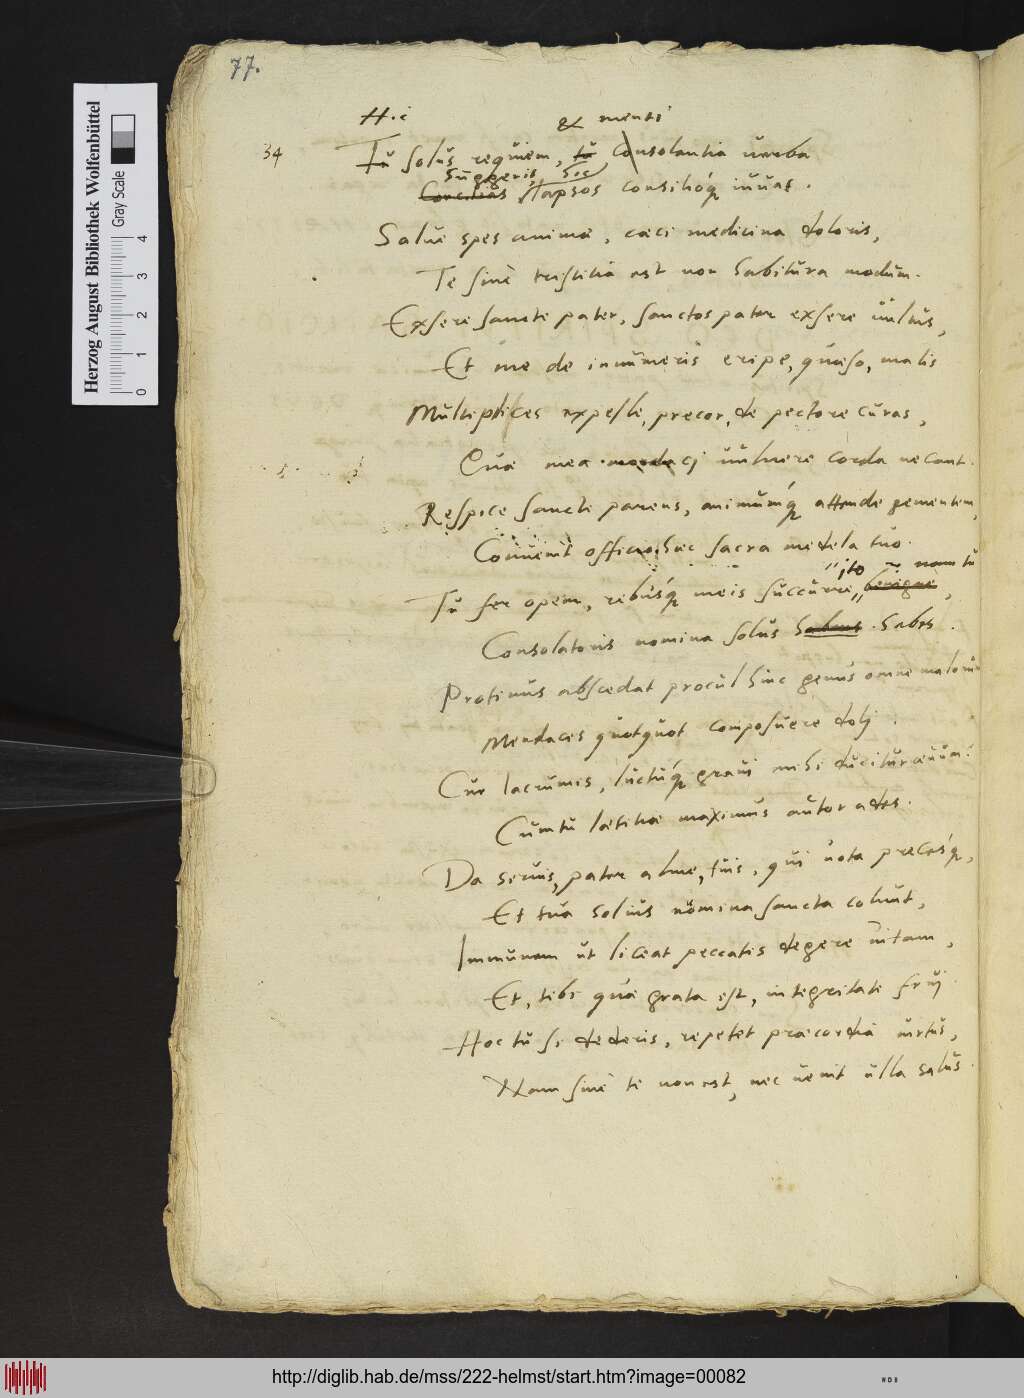 77.
H.i & menti
34 Tu solus requiem, tu consolantia verba
Suggeris, hoc
Concilias lapsos consilióq iuuat.
Salue spes animæ, cæci medicina doloris,
Te sine tristitia est non habitura modum.
Exsere sancte pater, sanctos pater exsere uultus,
Et me de innumeris eripe, quæso, malis
Multiplices expelle, precor, de pectore curas,
Quæ mea mordaci uulnere corda necant.
Respice sancte parens, animumq́ attende gementem,
Conuenit officio hæc sacra medela tuo.
ito nam tu
Tu fer opem, rebusq́ meis succurre benigne,
Consolatoris nomina solus habens habes.
Protinus abscedat procul hinc genus omne malorum
Mendaces quotquot composuere dolj.
Cur lacrumis, luctuq́ graui mihi ducitur æuum?
Cum tu lætitiæ maximus autor ades.
Da seruis, pater alme, tuis, qui uota precesq́,
Et tua solius nomina sancta colunt,
Immunem ut liceat peccatis degere uitam,
Et, tibi quæ grata est, integritate fruj
Hoc tu si dederis, repetet præcordia uirtus,
Nam sine te non est, nec uenit ulla salus.
Herzog August Bibliothek Wolfenbüttel
Gray Scale
0 1 2 3 4
http://diglib.hab.de/mss/222-helmst/start.htm?image=00082